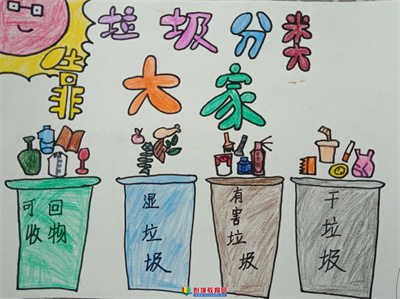 垃圾分类
靠大家
可回
收物
湿垃圾
有害垃圾
干垃圾